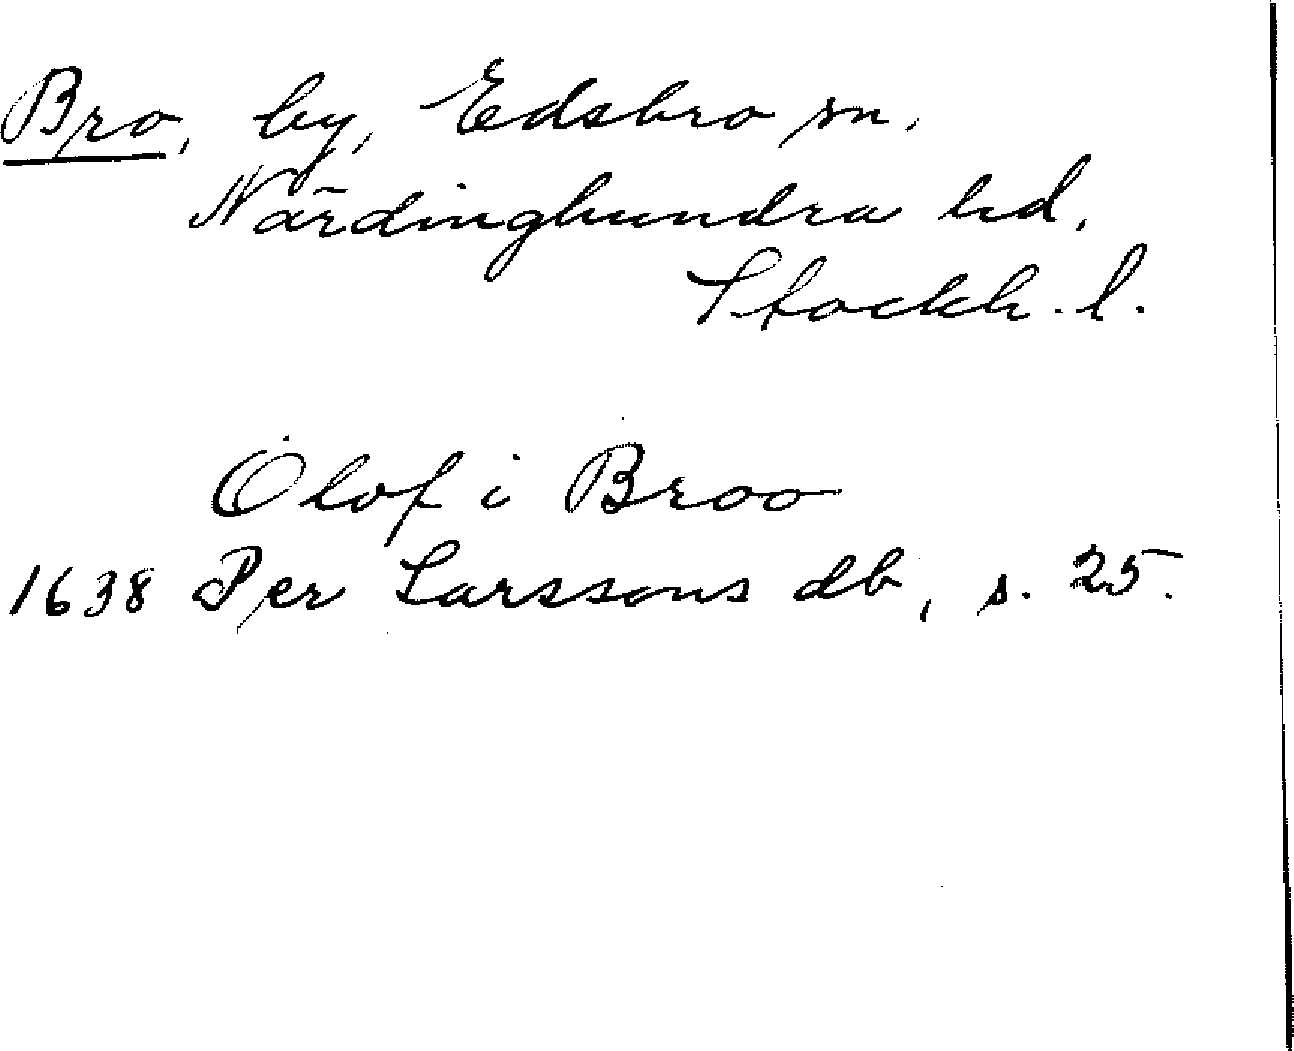 Bro, by, Edsbro sn.
Närdinghundra hd.
Stockh. l.
Olof i Broo
1638 Per Larssons db, s. 25.